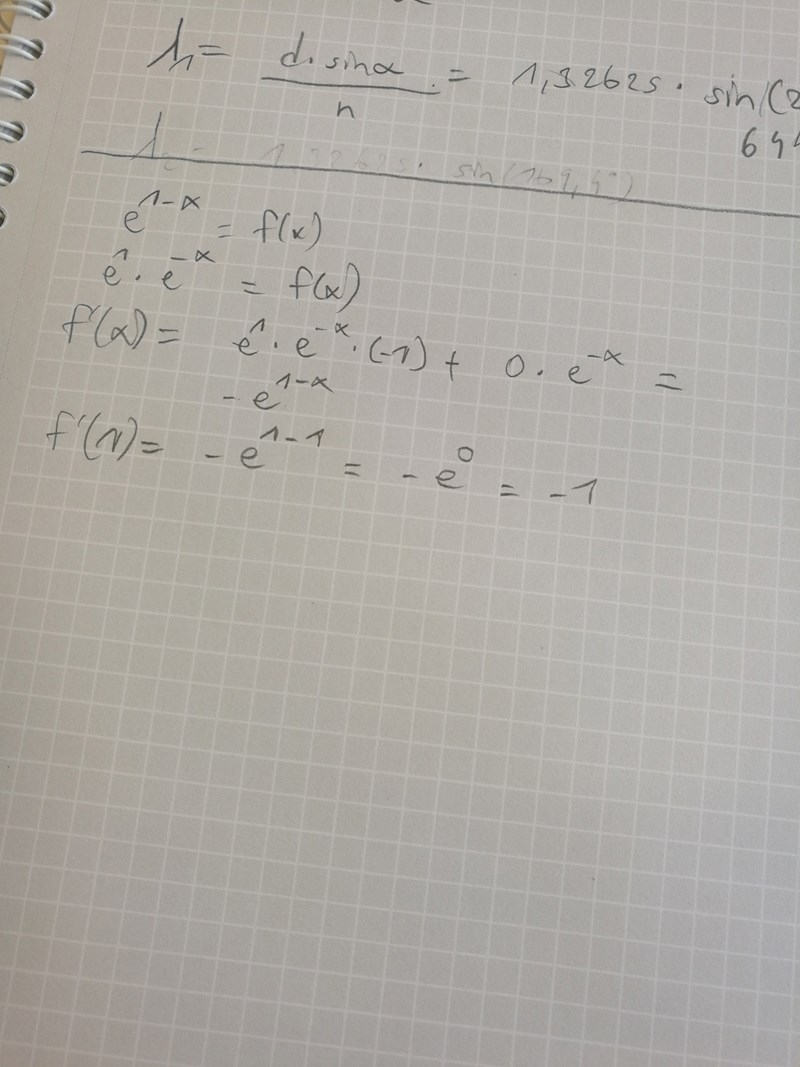 λ₁ = d·sinα / n = 1,32625· sin(2
644
sin(169,5°)
e^{1-x} = f(x)
e^1 · e^{-x} = f(x)
f'(x) = e^1 · e^{-x} · (-1) + 0 · e^{-x} =
- e^{1-x}
f'(1) = - e^{1-1} = - e^0 = -1